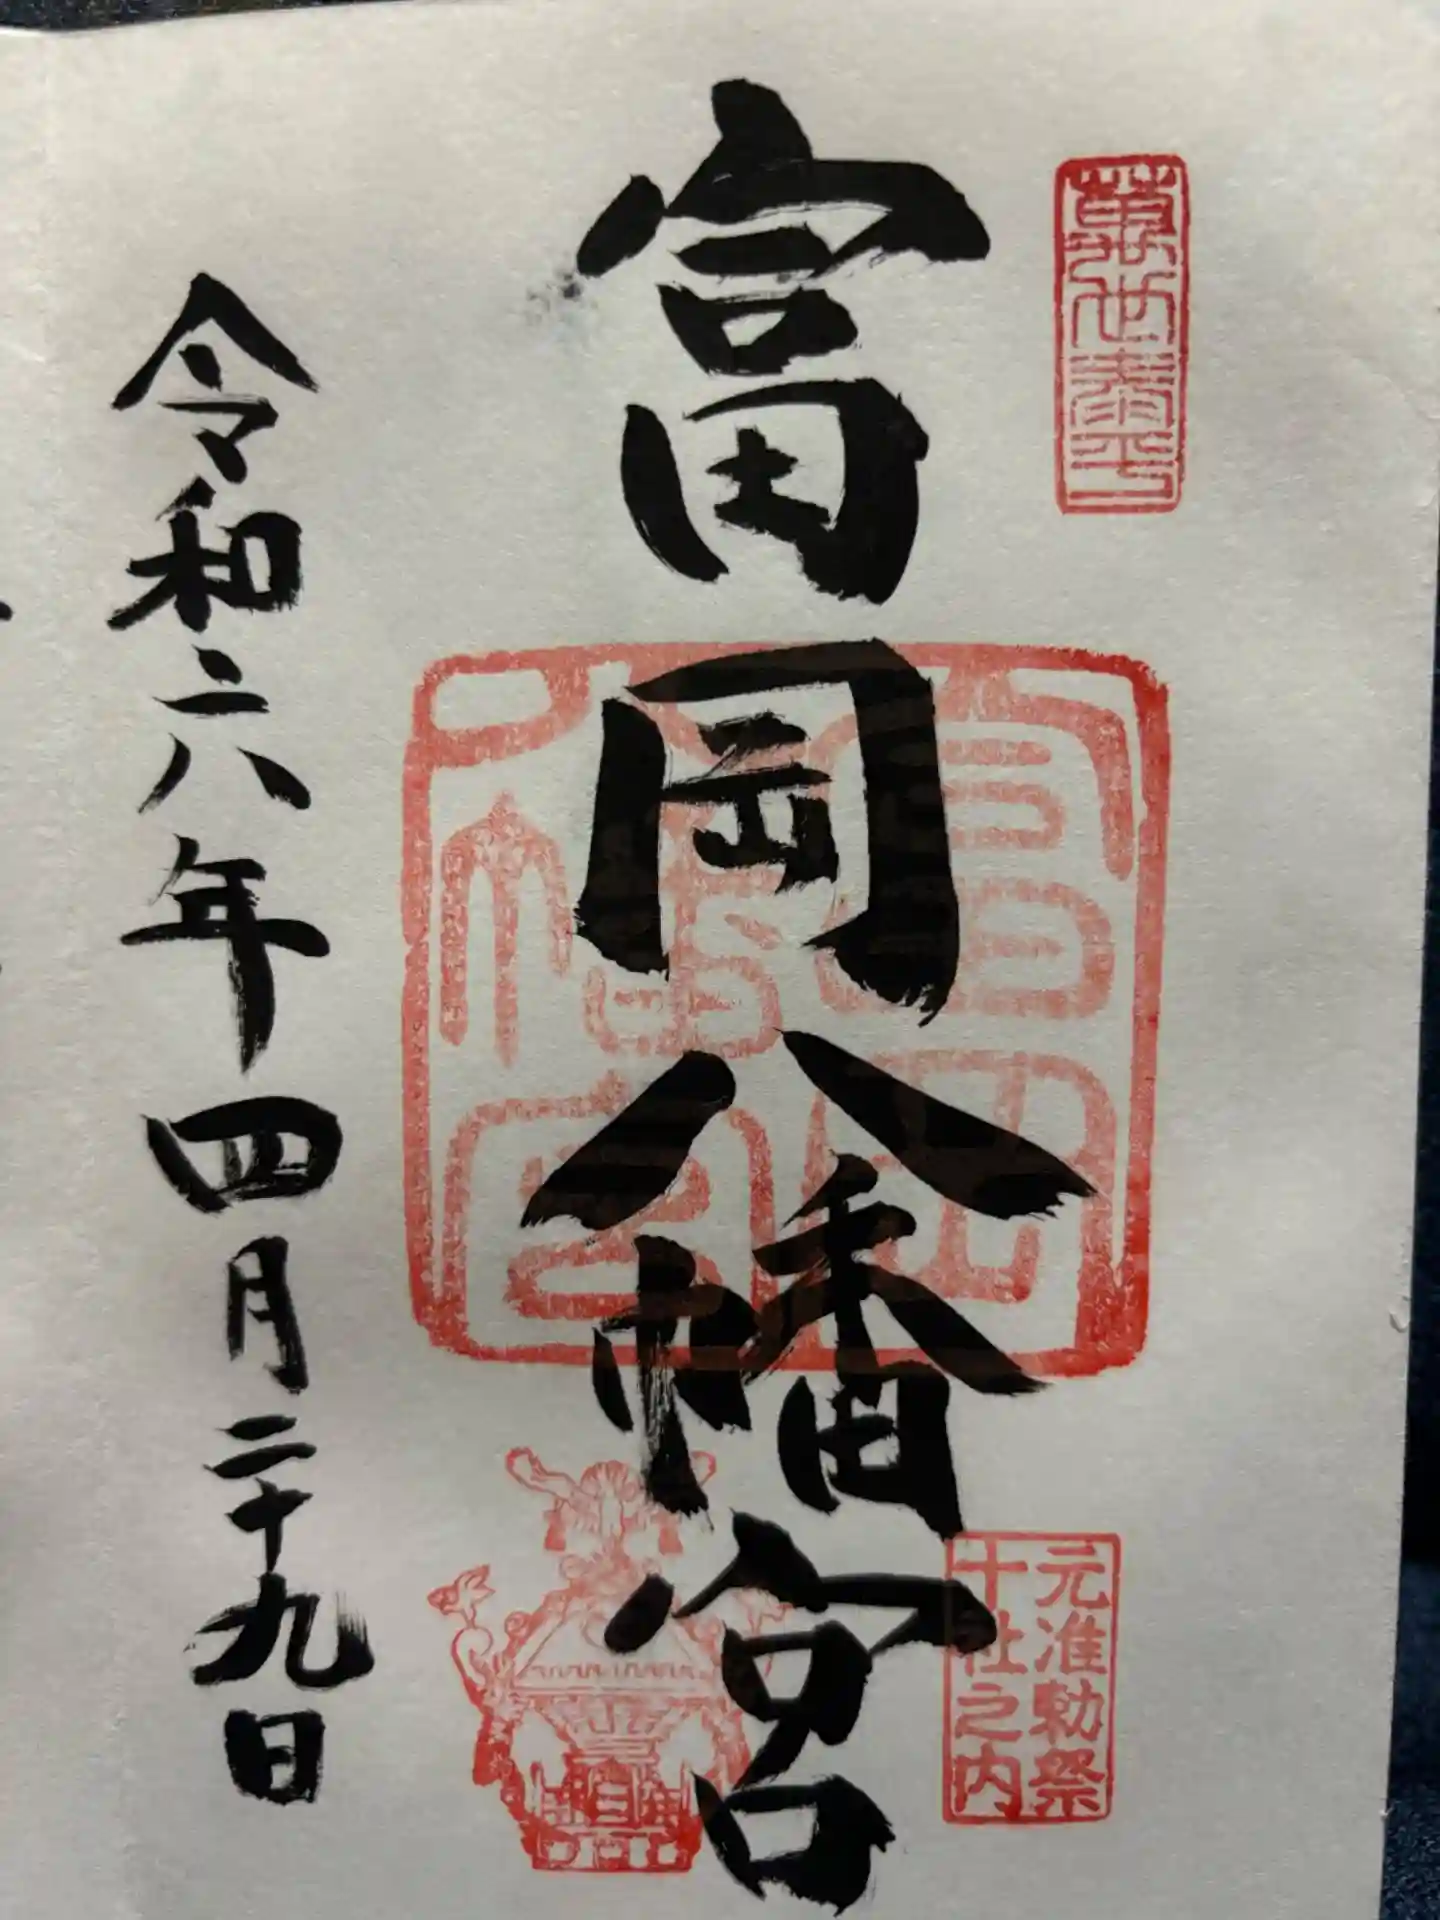 萬世泰平
富岡八幡宮
元准勅祭
十社之内
令和六年四月二十九日